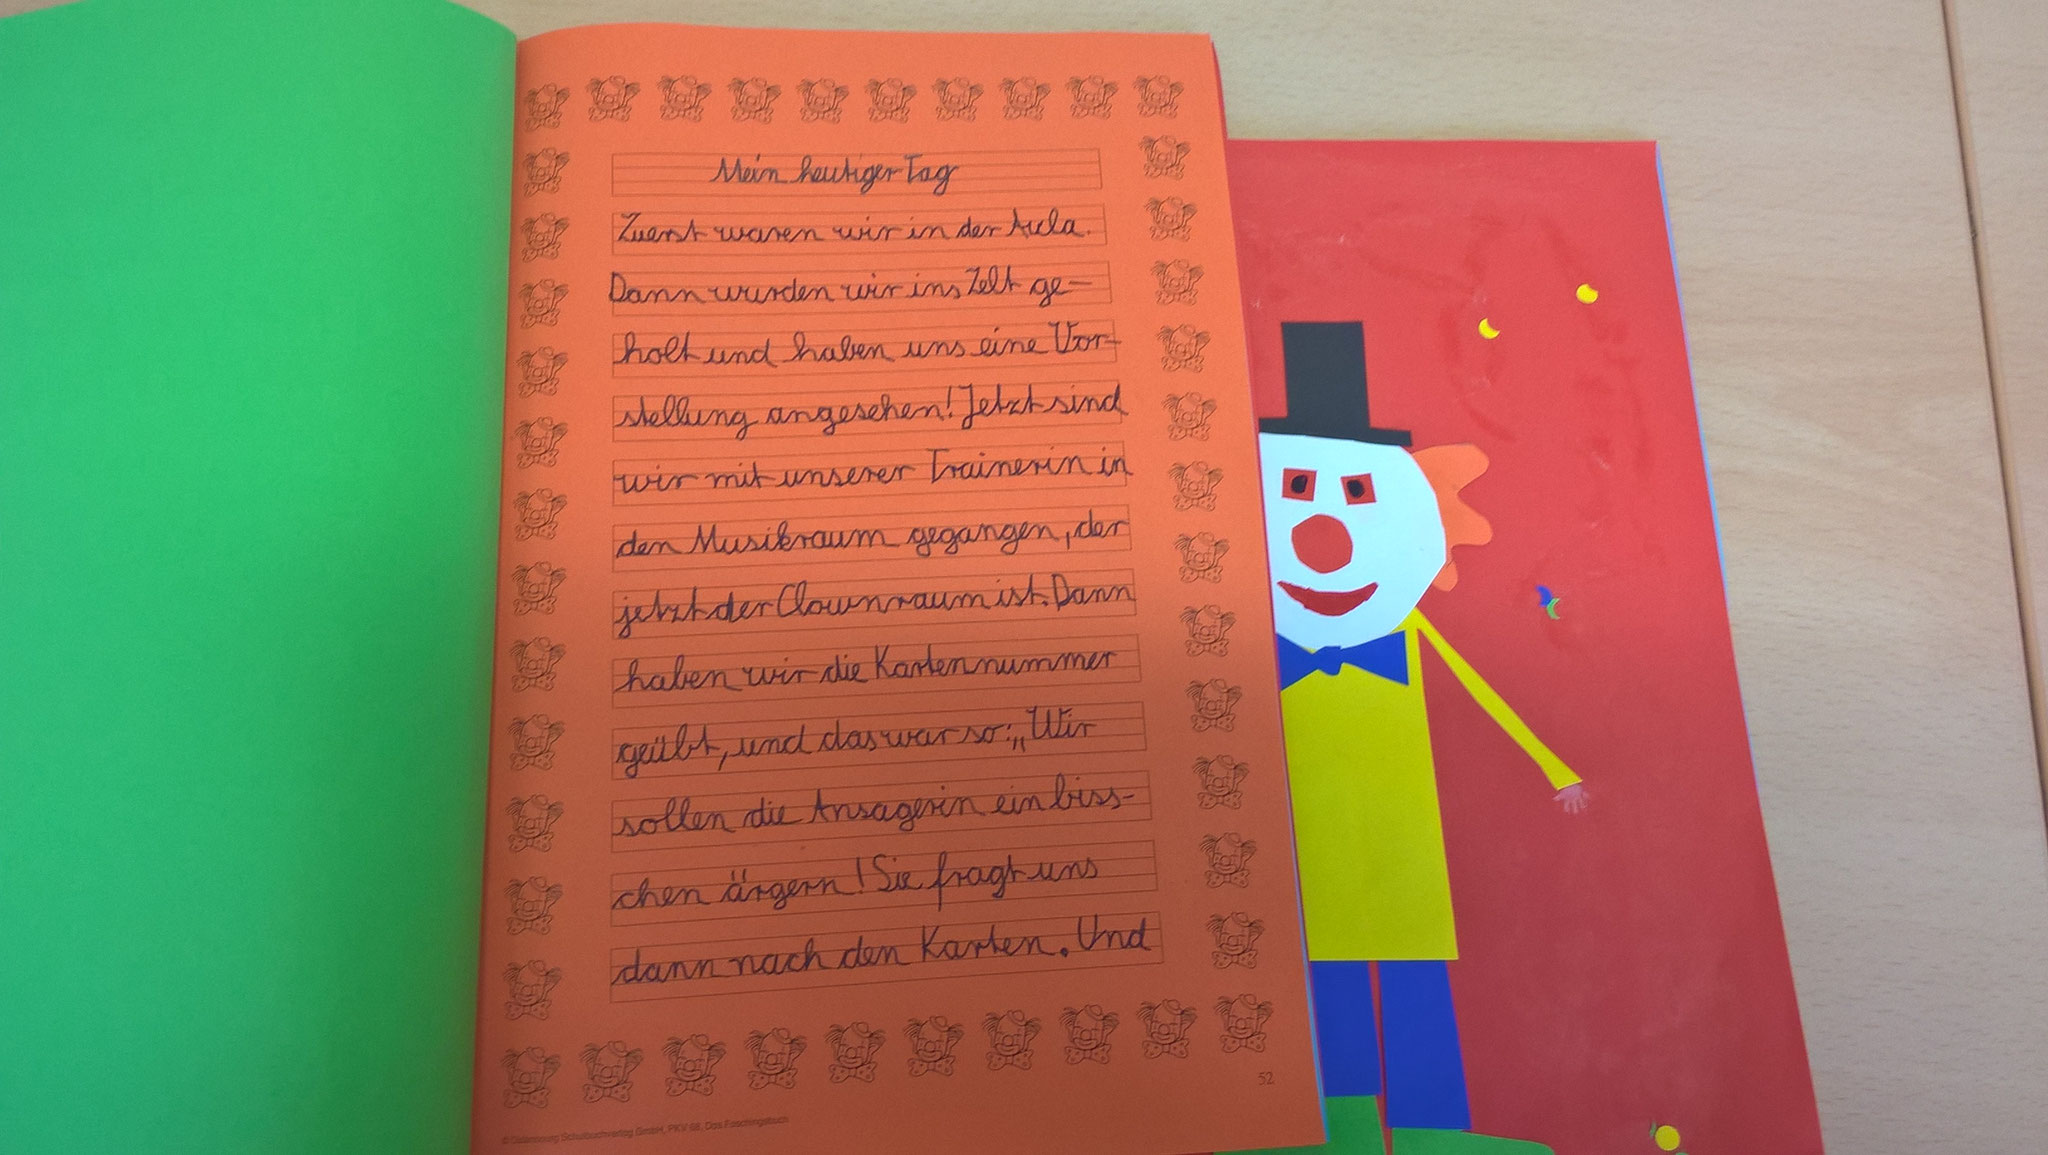 Mein heutiger Tag
Zuerst waren wir in der Aula.
Dann wurden wir ins Zelt ge-
holt und haben uns eine Vor-
stellung angesehen! Jetzt sind
wir mit unserer Trainerin in
den Musikraum gegangen, der
jetzt der Clownraum ist. Dann
haben wir die Kartennummer
geübt, und das war so: „Wir
sollen die Ansagerin ein biss-
chen ärgern! Sie fragt uns
dann nach den Karten. Und
52
© Oldenbourg Schulbuchverlag GmbH, PKV 68, Das Faschingsbuch